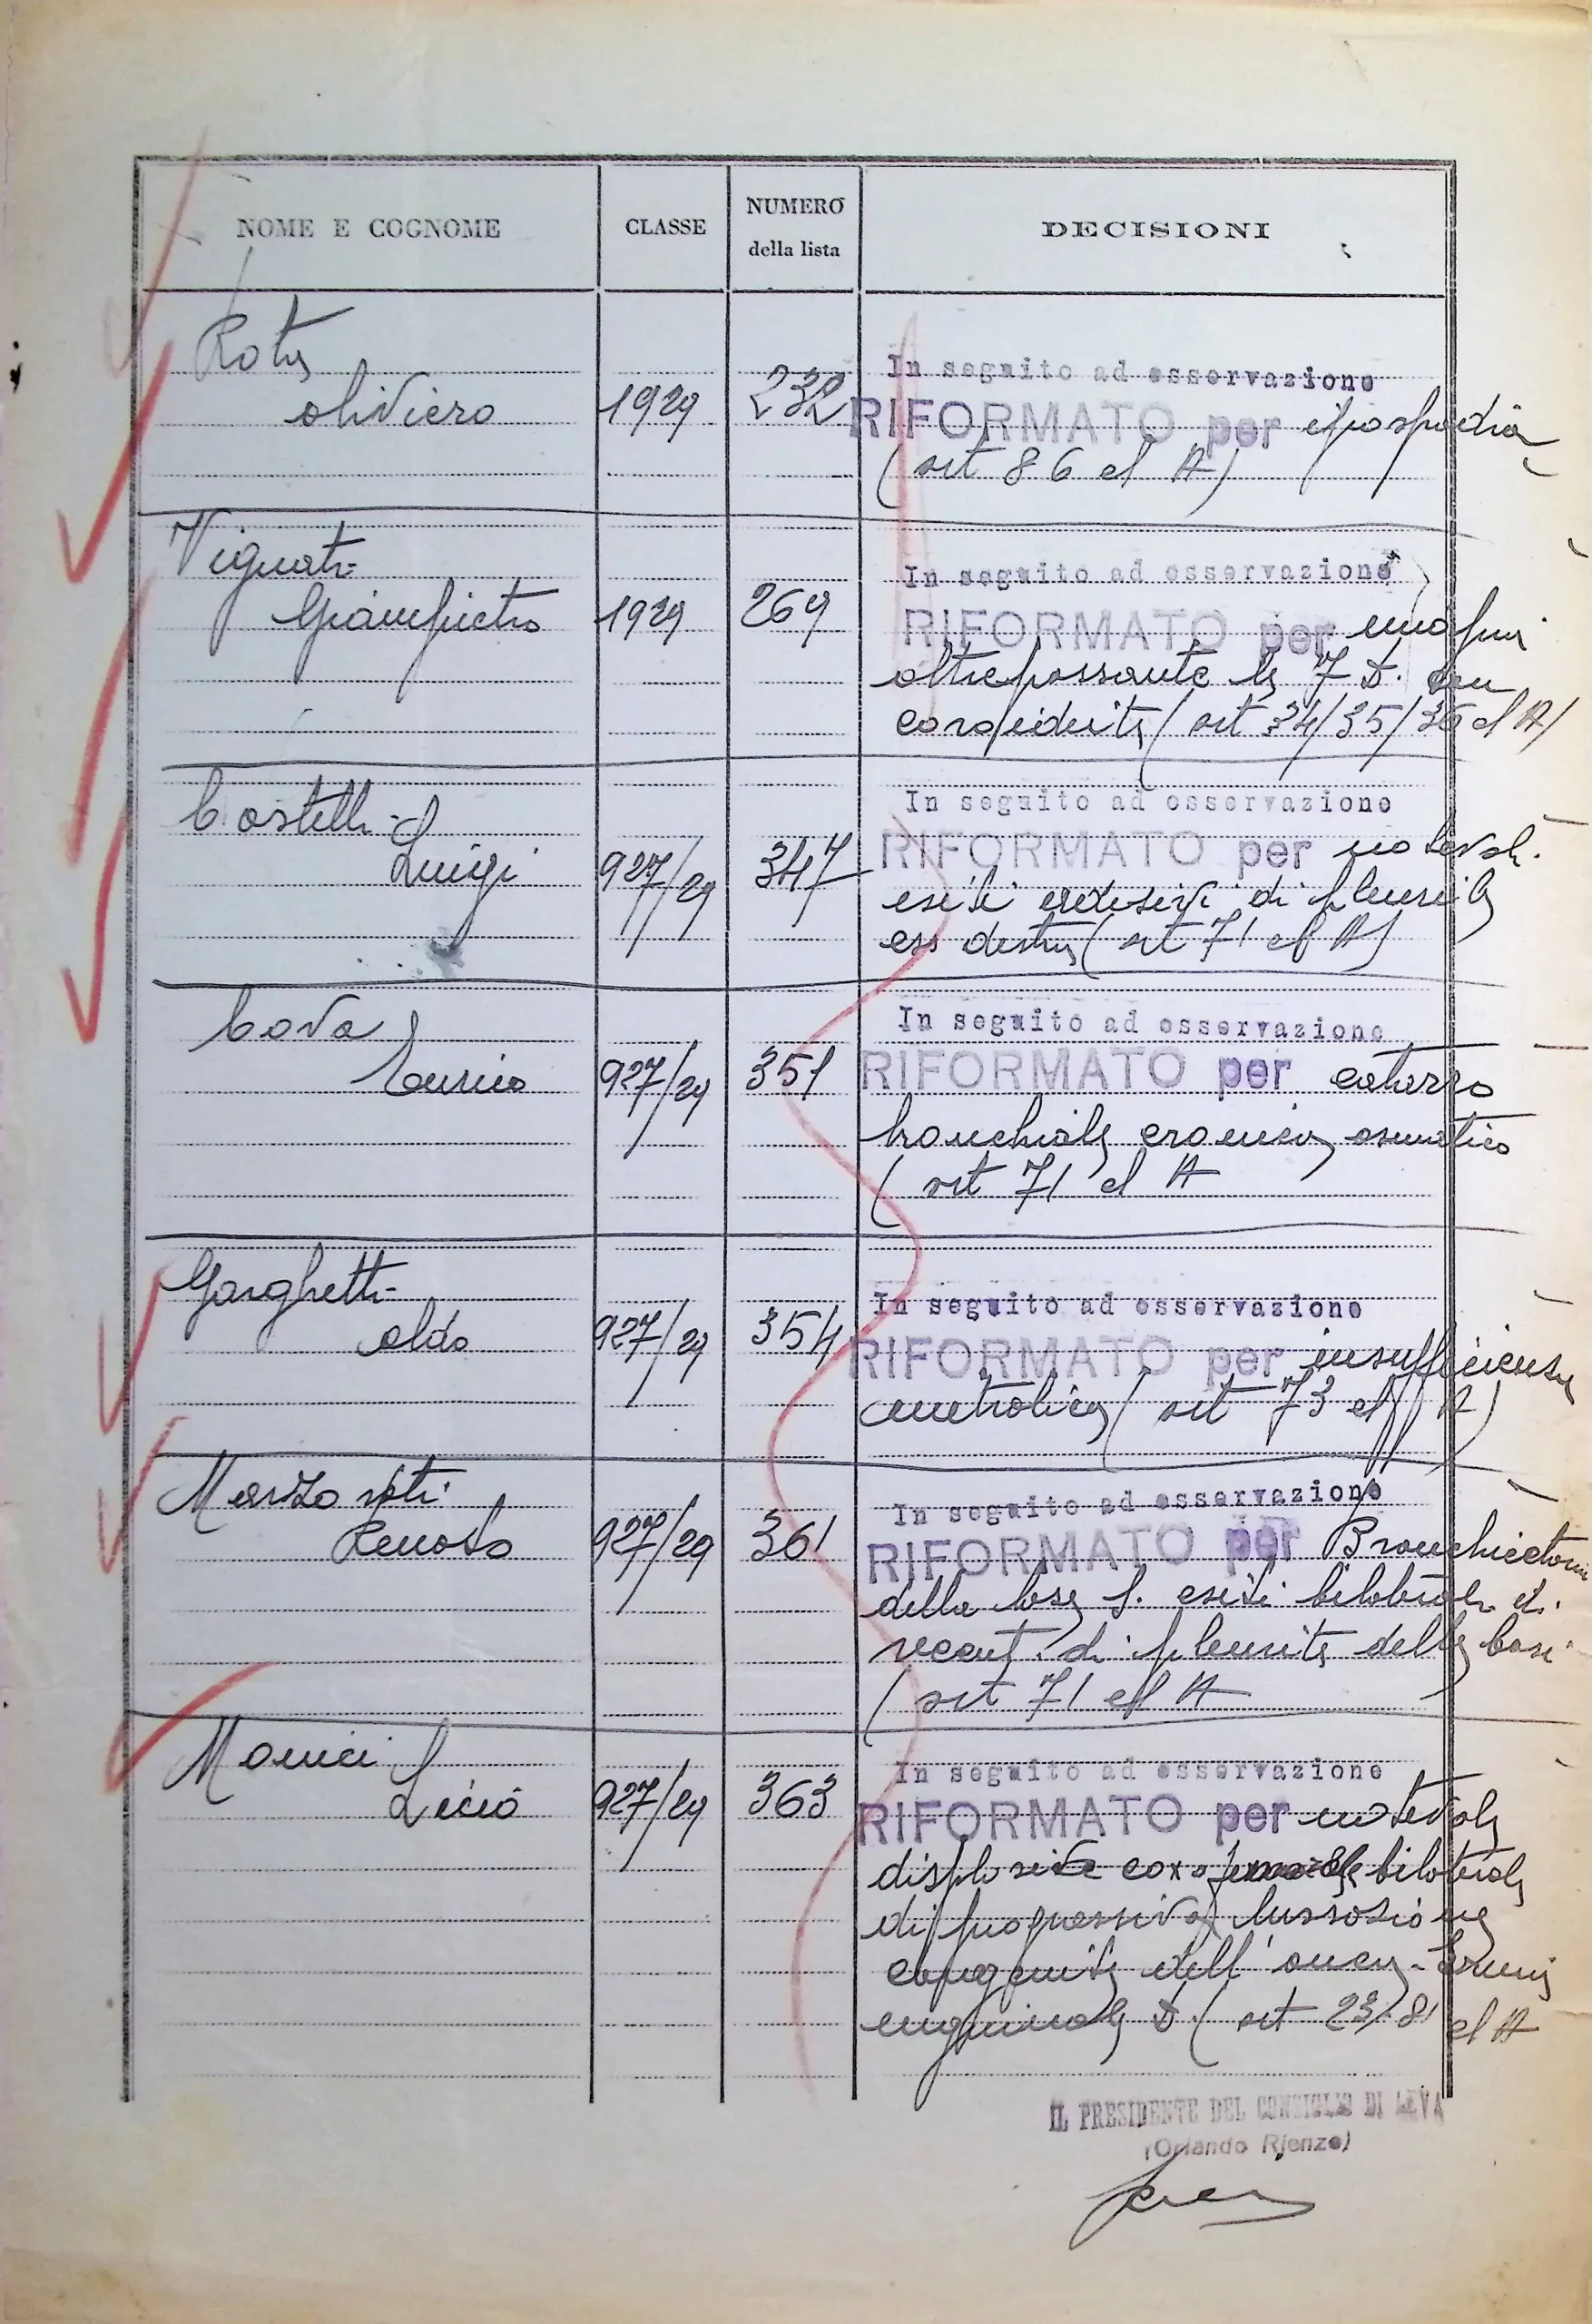 NOME E COGNOME
CLASSE
NUMERO
della lista
DECISIONI
Rota
oliviero
1929
232
In seguito ad osservazione
RIFORMATO per ipospadia
(art 86 el A)
Vignati
Giampietro
1929
269
In seguito ad osservazione
RIFORMATO per miopia
oltrepassante le 7 D.
(art 34/35/36 el A)
Castelli
Luigi
927/29
347
In seguito ad osservazione
RIFORMATO per notevoli
esiti adesivi di pleurite
destra (art 71 el A)
Cova
Enrico
927/29
351
In seguito ad osservazione
RIFORMATO per catarro
bronchiale cronico asmatico
(art 71 el A
Garghetti
aldo
927/29
354
In seguito ad osservazione
RIFORMATO per insufficienza
mitralica (art 73 el A)
Manzo
Renato
927/29
361
In seguito ad osservazione
RIFORMATO per
della base S. esiti bilaterali
recenti di pleurite delle basi
(art 71 el A
Licio
927/29
363
In seguito ad osservazione
RIFORMATO per notevole
displasia coxofemorale bilaterale
di progressiva lussazione
congenita dell'anca - Ernia
inguinale D. (art 23/81 el A
IL PRESIDENTE DEL CONSIGLIO DI LEVA
(Orlando Rienzo)